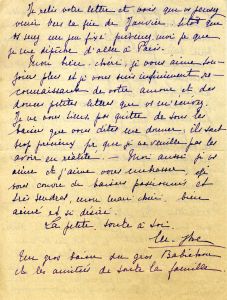 Je relis votre lettre et vois que vous pensez
vers la fin de Janvier. sitôt que
un peu fixé prévenez moi je que
je me dépêche d'aller à Paris.
Mon bien chéri, je vous aime tou
jours plus et je vous suis infiniment re
connaissante de votre amour et des
douces petites lettres que vous m'envoyez.
Je ne vous tiens pas quitte de tous les
baisers que vous dites me donner, ils sont
trop précieux pr que je ne veuille pas les
avoir en réalité. — Moi aussi je vs
aime et j'aime vous embrasser, je
vous couvre de baisers passionnés et
très tendres, mon mari chéri, bien
aimé et si désiré.
La petite toute à toi.
Un gros baiser du gros
et les amitiés de toute la famille.